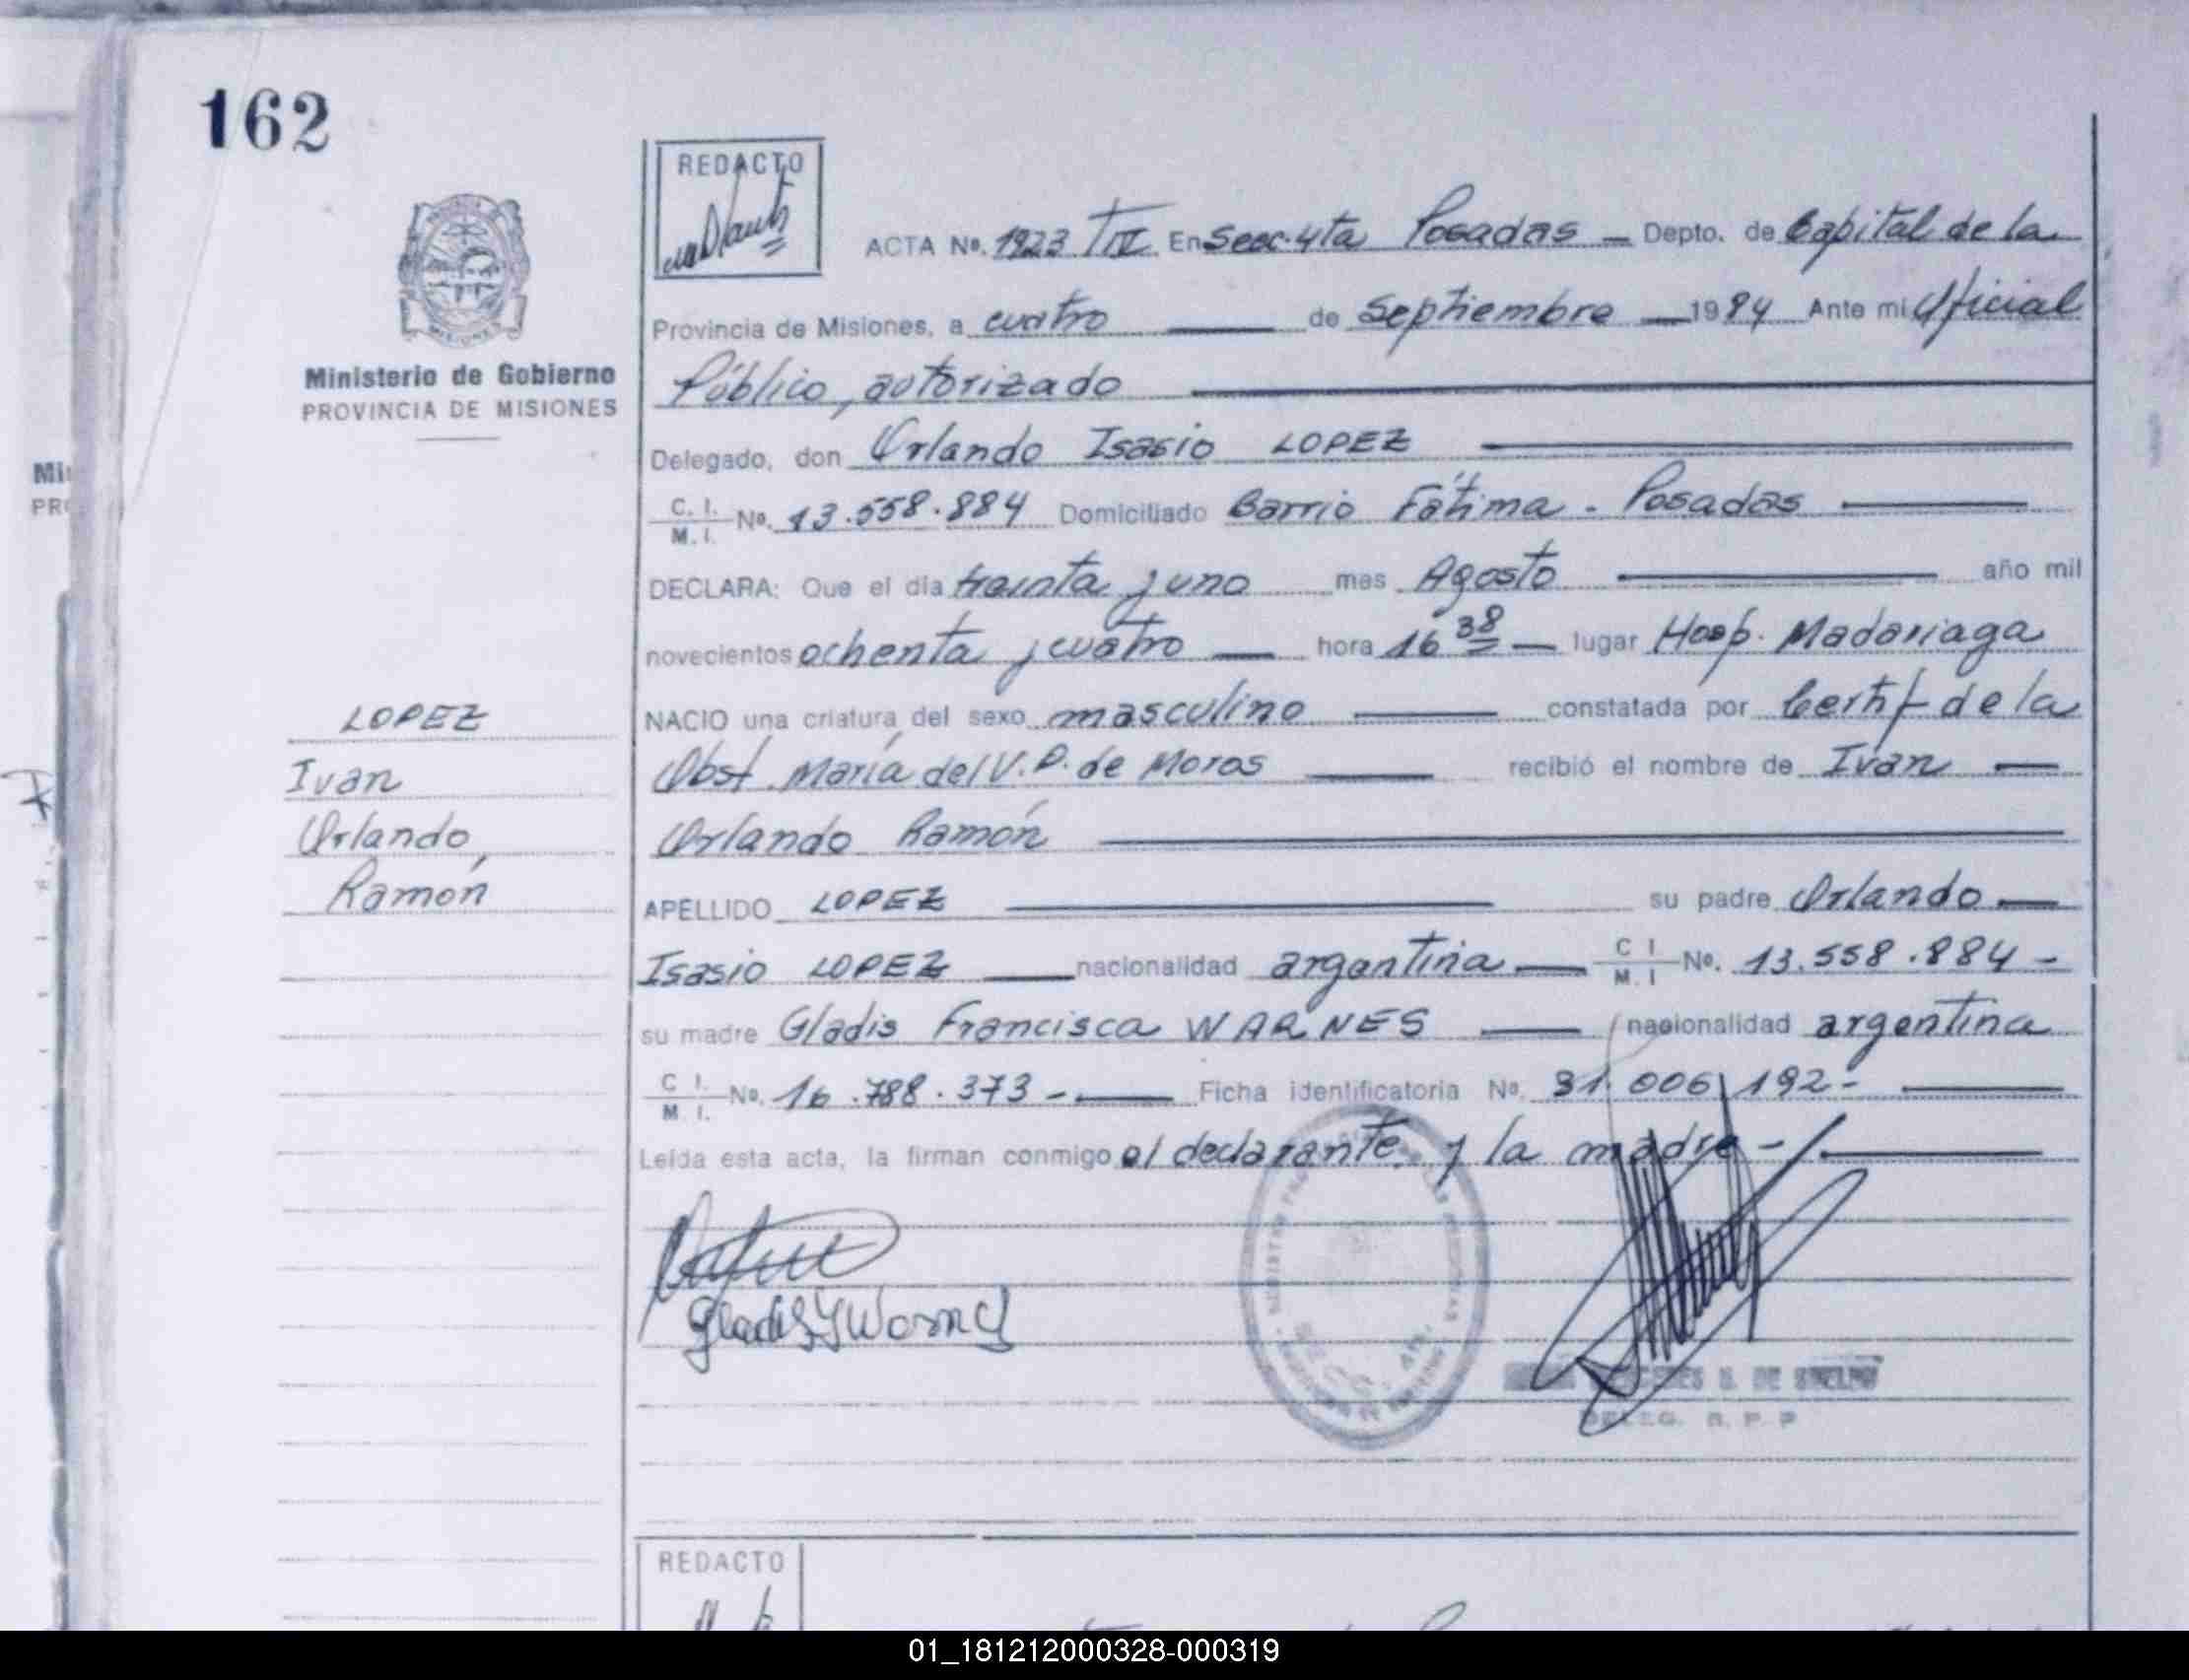 162
REDACTO
ACTA Nº. 1923 TIV En Secc. 4ta Posadas — Depto. de Capital de la
Provincia de Misiones, a cuatro — de Septiembre — 1984 Ante mi Oficial
Público, autorizado
Ministerio de Gobierno
PROVINCIA DE MISIONES
Delegado, don Orlando Isasio LOPEZ
C. I. M. I. Nº. 13.558.884 Domiciliado Barrio Fátima - Posadas
DECLARA: Que el día treinta y uno mes Agosto año mil
novecientos ochenta y cuatro hora 16 38 lugar Hosp. Madariaga
NACIO una criatura del sexo masculino constatada por Certif de la
Obst. María del V. P. de Moras recibió el nombre de Iván
Orlando Ramón
APELLIDO LOPEZ su padre Orlando
Isasio LOPEZ nacionalidad argentina C I M. I Nº. 13.558.884 -
su madre Gladis Francisca WARNES nacionalidad argentina
C I. M. I. Nº. 16.788.373 - Ficha identificatoria Nº. 31.006.192 -
Leída esta acta, la firman conmigo el declarante y la madre -
LOPEZ
Ivan
Orlando
Ramón
DE
DELEG. R. P. P
REDACTO
Mi
PR
01_181212000328-000319